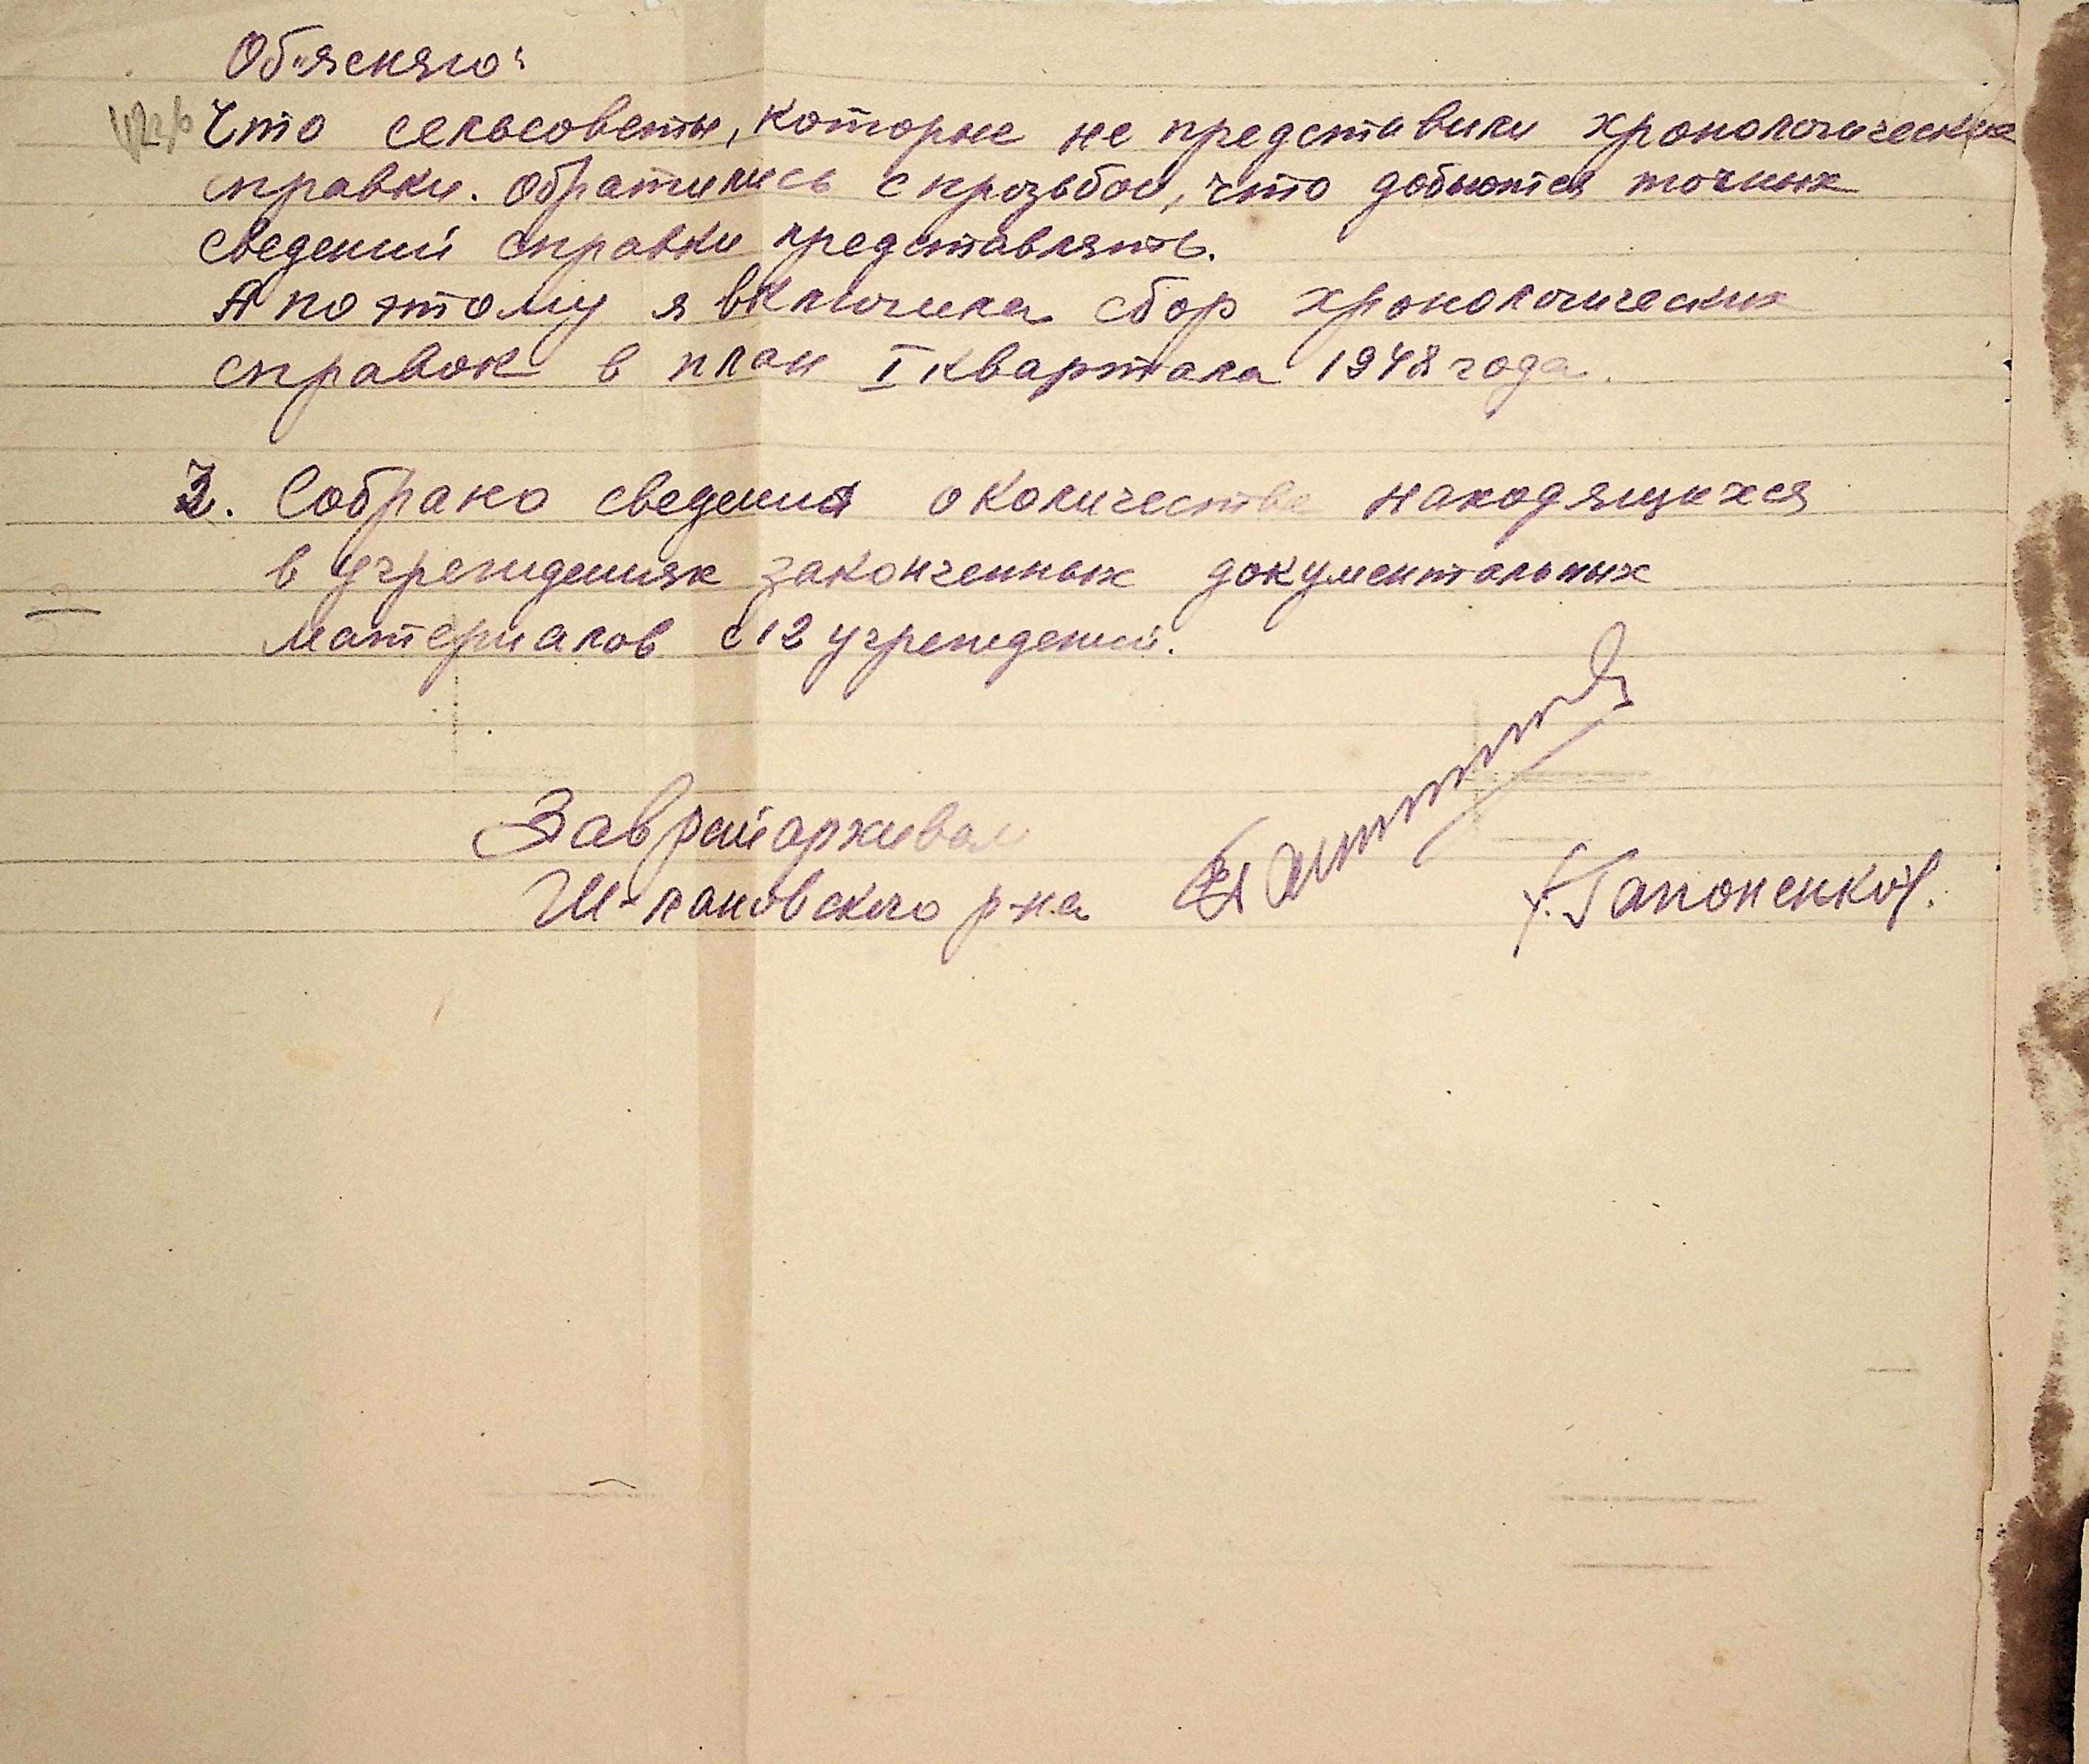 Об"ясняю:
Что сельсоветы, которые не представили хронологические
справки. Обратились с прозьбой, что добьются точных
сведений справки представлять.
А поэтому я включила сбор хронологических
справок в план I квартала 1948 года.
3. Собрано сведения о количестве находящихся
в учреждениях законченных документальных
материалов с 12 учреждений.
Заврайархивом
Ш-лановского р-на
Гапоненко